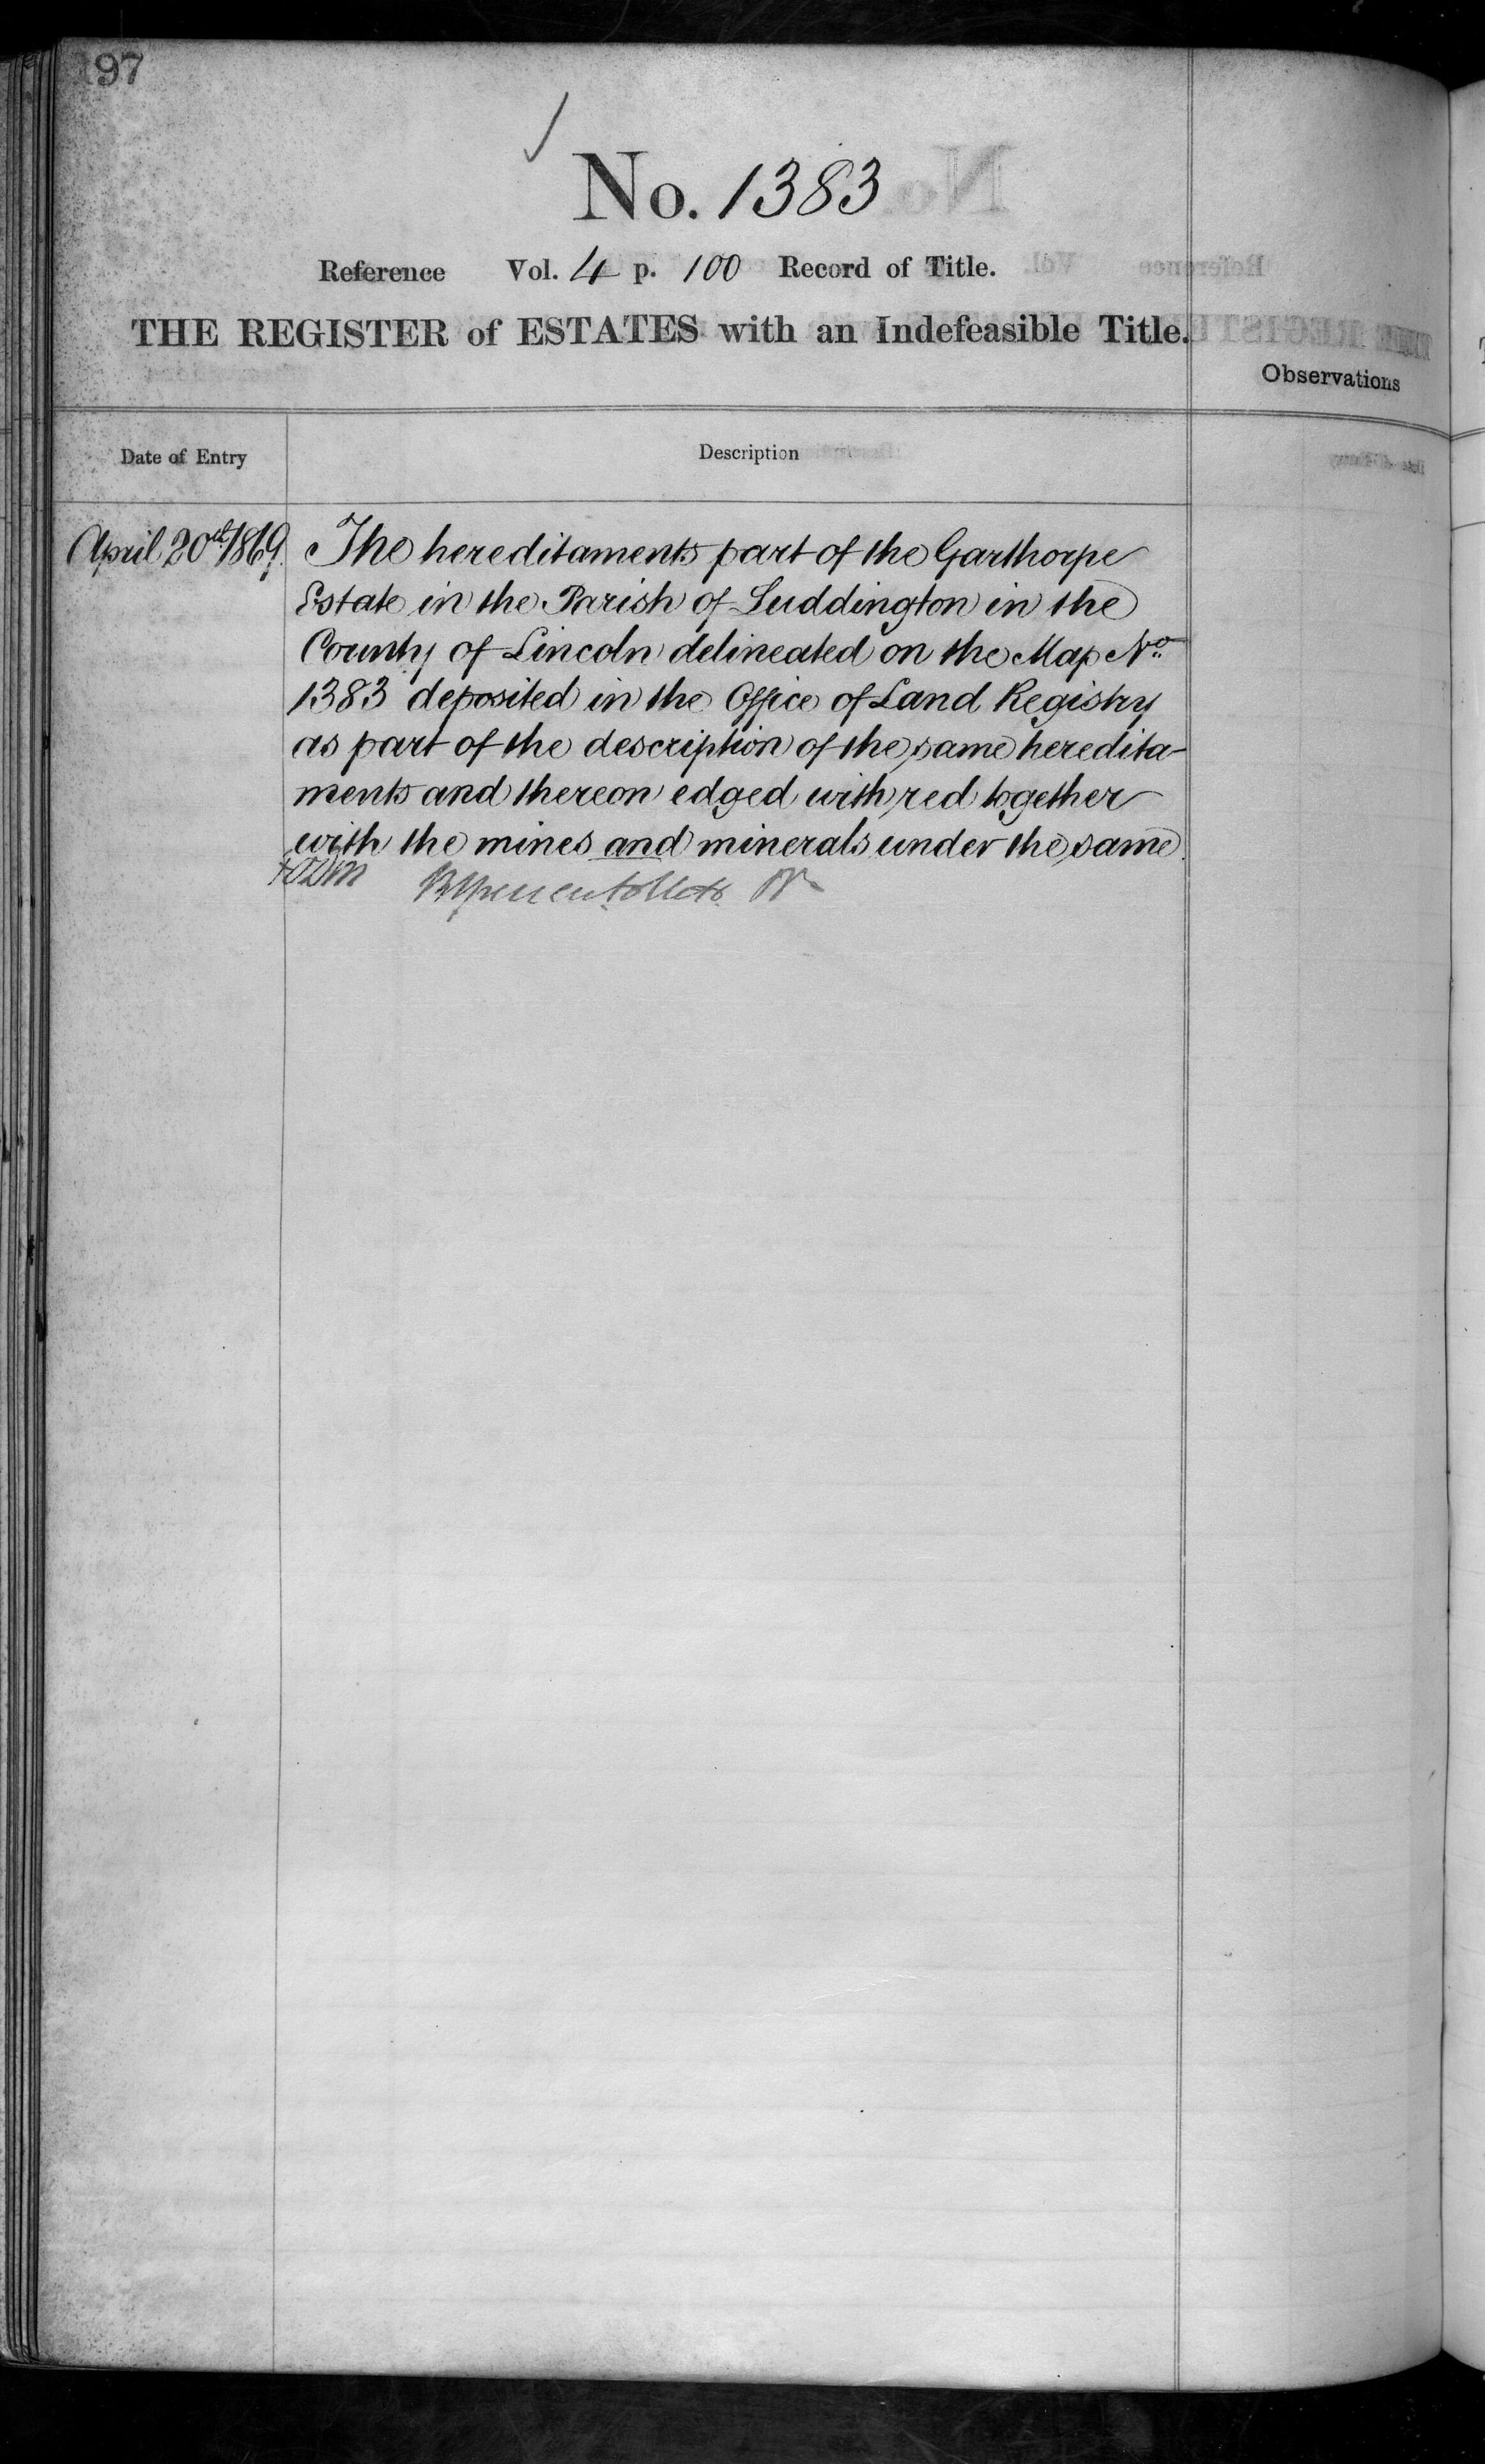 197
No. 1383
Reference Vol. 4 p. 100 Record of Title.
THE REGISTER of ESTATES with an Indefeasible Title.
Observations
Date of Entry
Description
April 20th 1869. The hereditaments part of the Garthorpe
Estate in the Parish of Luddington in the
County of Lincoln delineated on the Map No.
1383 deposited in the Office of Land Registry
as part of the description of the same heredita-
ments and thereon edged with red together
with the mines and minerals under the same